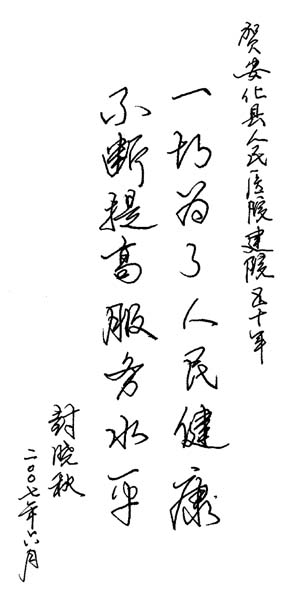 贺安化县人民医院建院五十年
一切为了人民健康
不断提高服务水平
封晓秋
二〇〇七年六月